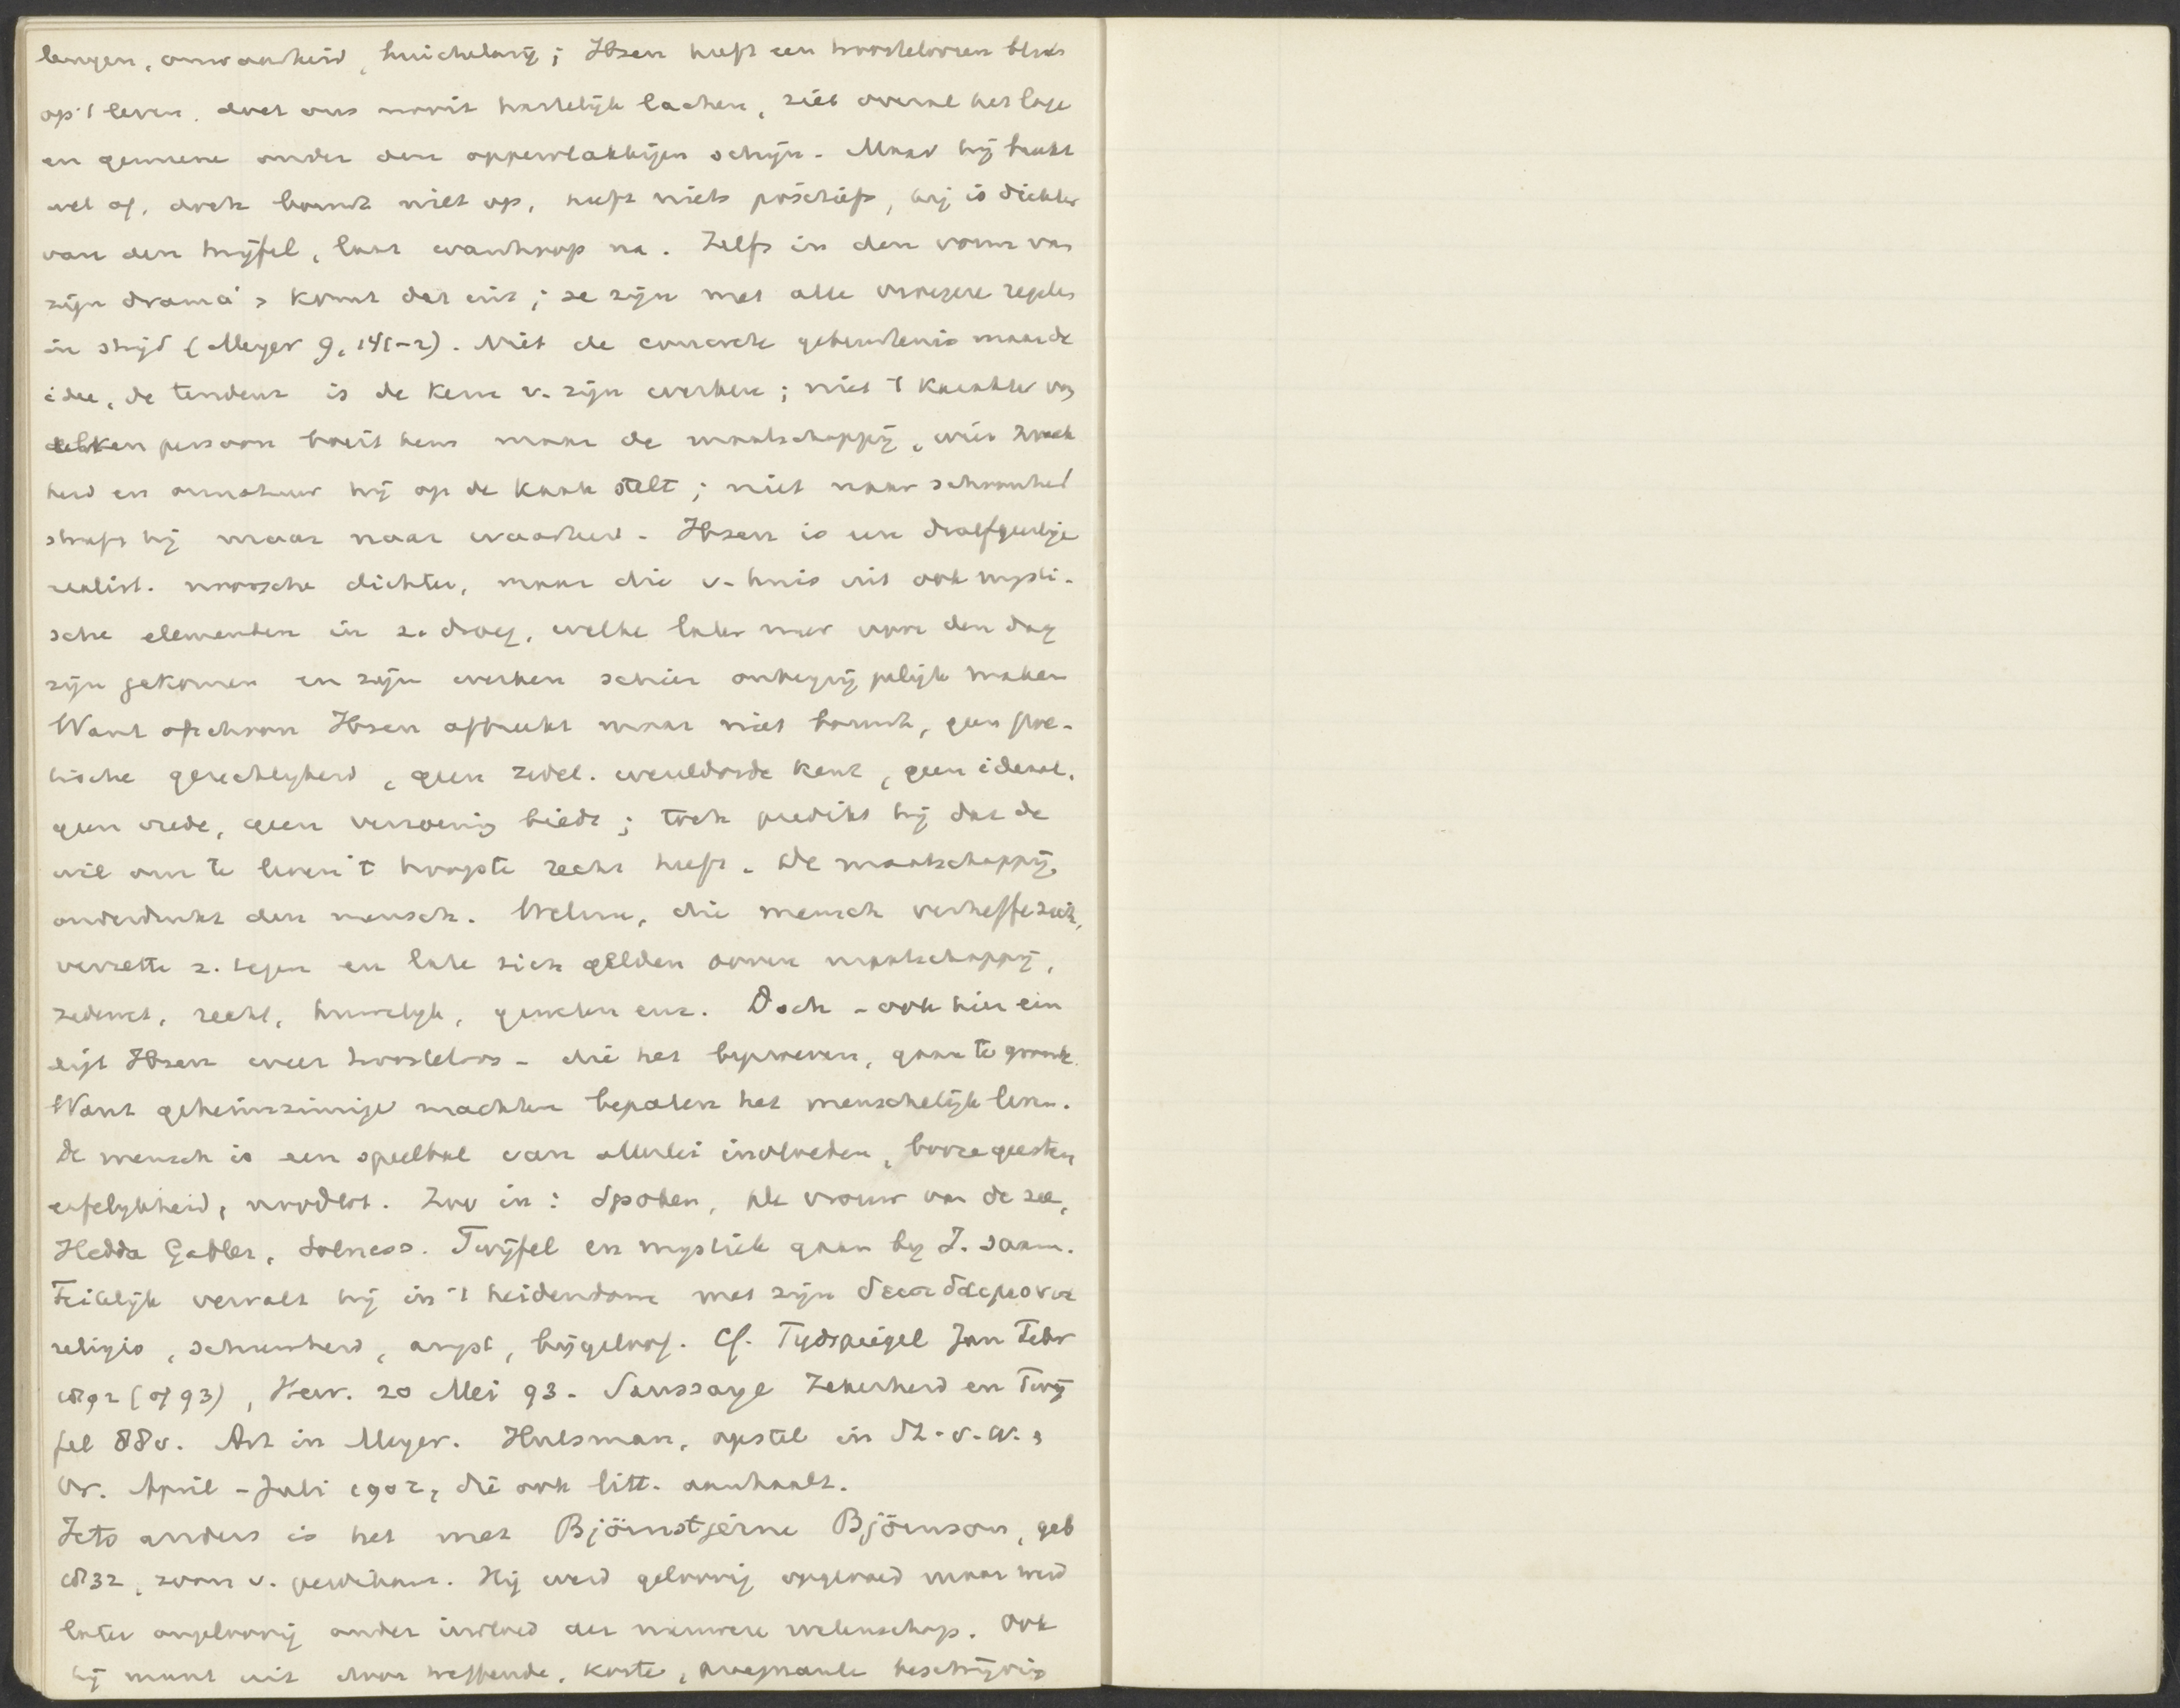 leugen, onwaarheid, huichelarij; Ibsen heeft een troosteloozen blik
op 't leven. doet ons nooit hartelijk lachen, ziet overal het lage
en gemeene onder den oppervlakkigen schijn. Maar hij breekt
wel af, doch bouwt niet op, heeft niets positiefs, hij is dichter
van den twijfel, laat wanhoop na. Zelfs in den vorm van
zijn drama's komt dat uit; ze zijn met alle vroegere regels
in strijd (Meyer 9, 141-2). Niet de concrete gebeurtenis maar de
idee, de tendenz is de kern v. zijn werken; niet 't karakter van
elken persoon boeit hem maar de maatschappij, wier zwak
heid en onnatuur hij op de kaak stelt; niet naar schoonheid
streeft hij maar naar waarheid. Ibsen is een
realist. noorsche dichter, maar die v. huis uit ook mysti-
sche elementen in z. droeg, welke later meer voor den dag
zijn gekomen en zijn werken schier onbegrijpelijk maken
Want ofschoon Ibsen afbreekt maar niet bouwt, geen poe-
tische gerechtigheid, geen zedel. wereldorde kent, geen ideaal,
geen vrede, geen verzoening biedt; toch predikt hij dat de
wil om te leven 't hoogste recht heeft. De maatschappij
onderdrukt den mensch. Welnu, die mensch verheffe zich,
verzette z. tegen en late zich gelden boven maatschappij,
zedewet, recht, huwelijk, geweten enz. Doch - ook hier ein
digt Ibsen weer troosteloos - die het beproeven, gaan te gronde.
Want geheimzinnige machten bepalen het menschelijk leven.
De mensch is een speelbal van allerlei invloeden, booze geesten
erfelykheid, noodlot. Zoo in: Spoken, De vrouw van de zee,
Hedda Gabler, Solness. Twijfel en mystiek gaan by I. saam.
Feitelijk vervalt hij in 't heidendom met zijn
religio, schuwheid, angst, bijgeloof. Cf. Tydspiegel Jan Febr
1892 (of 93), Her. 20 Mei 93. Saussaye Zekerheid en Twij
fel 88v. Art in Meyer. Hulsman, opstel in St. v. W. &
Vr. April - Juli 1902, die ook litt. aanhaalt.
Iets anders is het met Björnstjerne Björnson, geb
1832, zoon v. predikant. Hij werd geloovig opgevoed maar werd
later ongeloovig onder invloed der nieuwere wetenschap. Ook
hij munt uit door treffende, korte, beschrijving